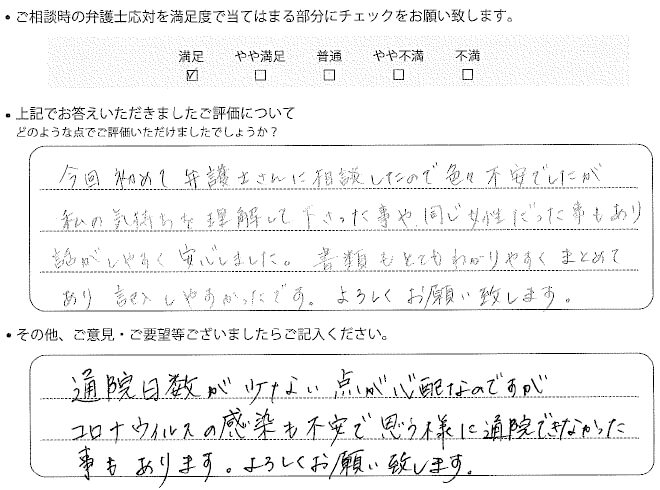 • ご相談時の弁護士応対を満足度で当てはまる部分にチェックをお願い致します。
満足 やや満足 普通 やや不満 不満
☑ ☐ ☐ ☐ ☐
• 上記でお答えいただきましたご評価について
どのような点でご評価いただけましたでしょうか？
今回 初めて 弁護士さんに 相談したので 色々 不安でしたが
私の気持ちを理解して下さった事や、同じ女性だった事もあり
話がしやすく 安心しました。 書類もとてもわかりやすく まとめて
あり 記入しやすかったです。 よろしく お願い致します。
• その他、ご意見・ご要望等ございましたらご記入ください。
通院日数が少ない点が心配なのですが
コロナウィルスの感染も不安で思う様に通院できなかった
事もあります。よろしくお願い致します。